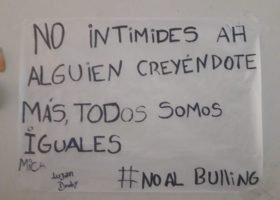 NO INTIMIDES AH
ALGUIEN CREYÉNDOTE
MÁS, TODOS SOMOS
IGUALES
#NO AL BULLING